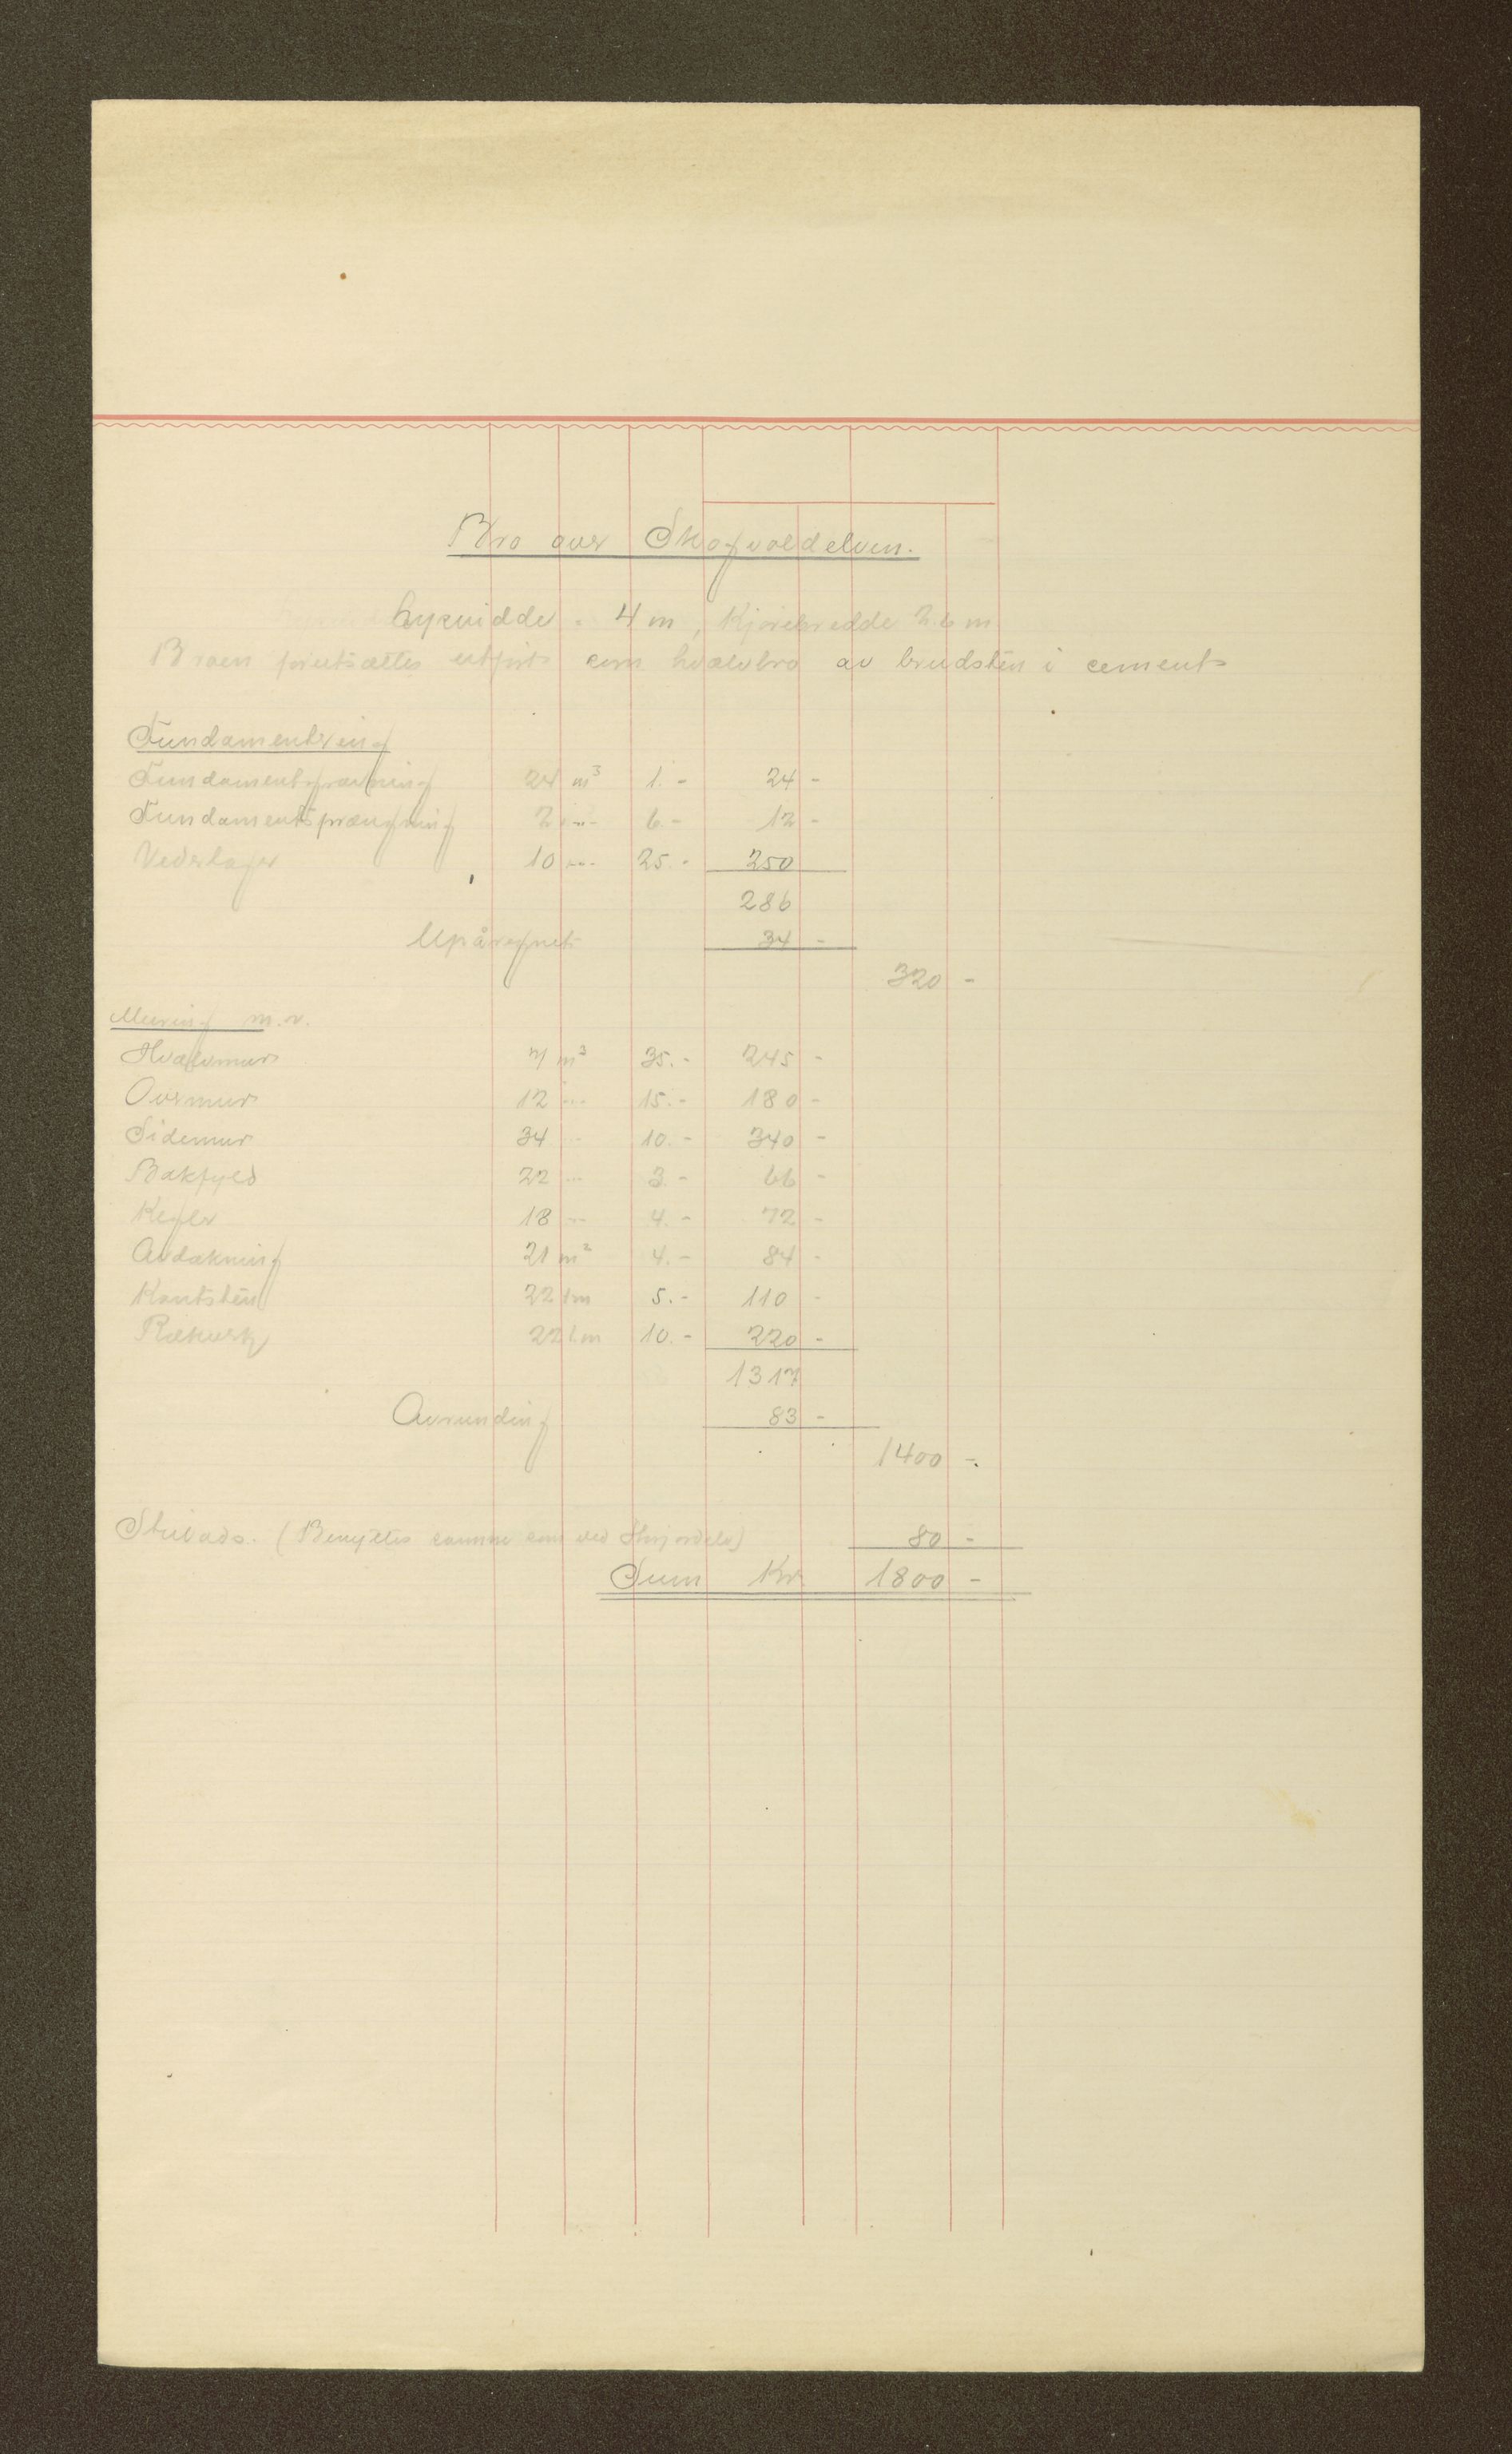 Bro over Skogvoldelven.
Lysvidde = 4 m, Kjørebredde 2.6 m
Broen forutsættes utført som hvælvbro av brudsten i cement
Fundamentering
Fundamentgravning 24 m³ 1.- 24 -
Fundamentsprængning 2 -"- 6.- 12 -
Vederlager 10 -"- 25.- 250
286
Upåregnet 34 -
320 -
Muring m.v.
Hvælvmur 7 m³ 35.- 245 -
Overmur 12 -"- 15.- 180 -
Sidemur 34 - 10.- 340 -
Bakfyld 22 -"- 3.- 66 -
Kegler 18 -"- 4.- 72 -
Avdækning 21 m² 4.- 84 -
Kantsten 22 lm 5.- 110 -
Rækverk 22 l.m 10.- 220 -
1317
Avrunding 83 -
1400 -
Stillads. (Benyttes samme som ved) 80 -
Sum Kr. 1800 -